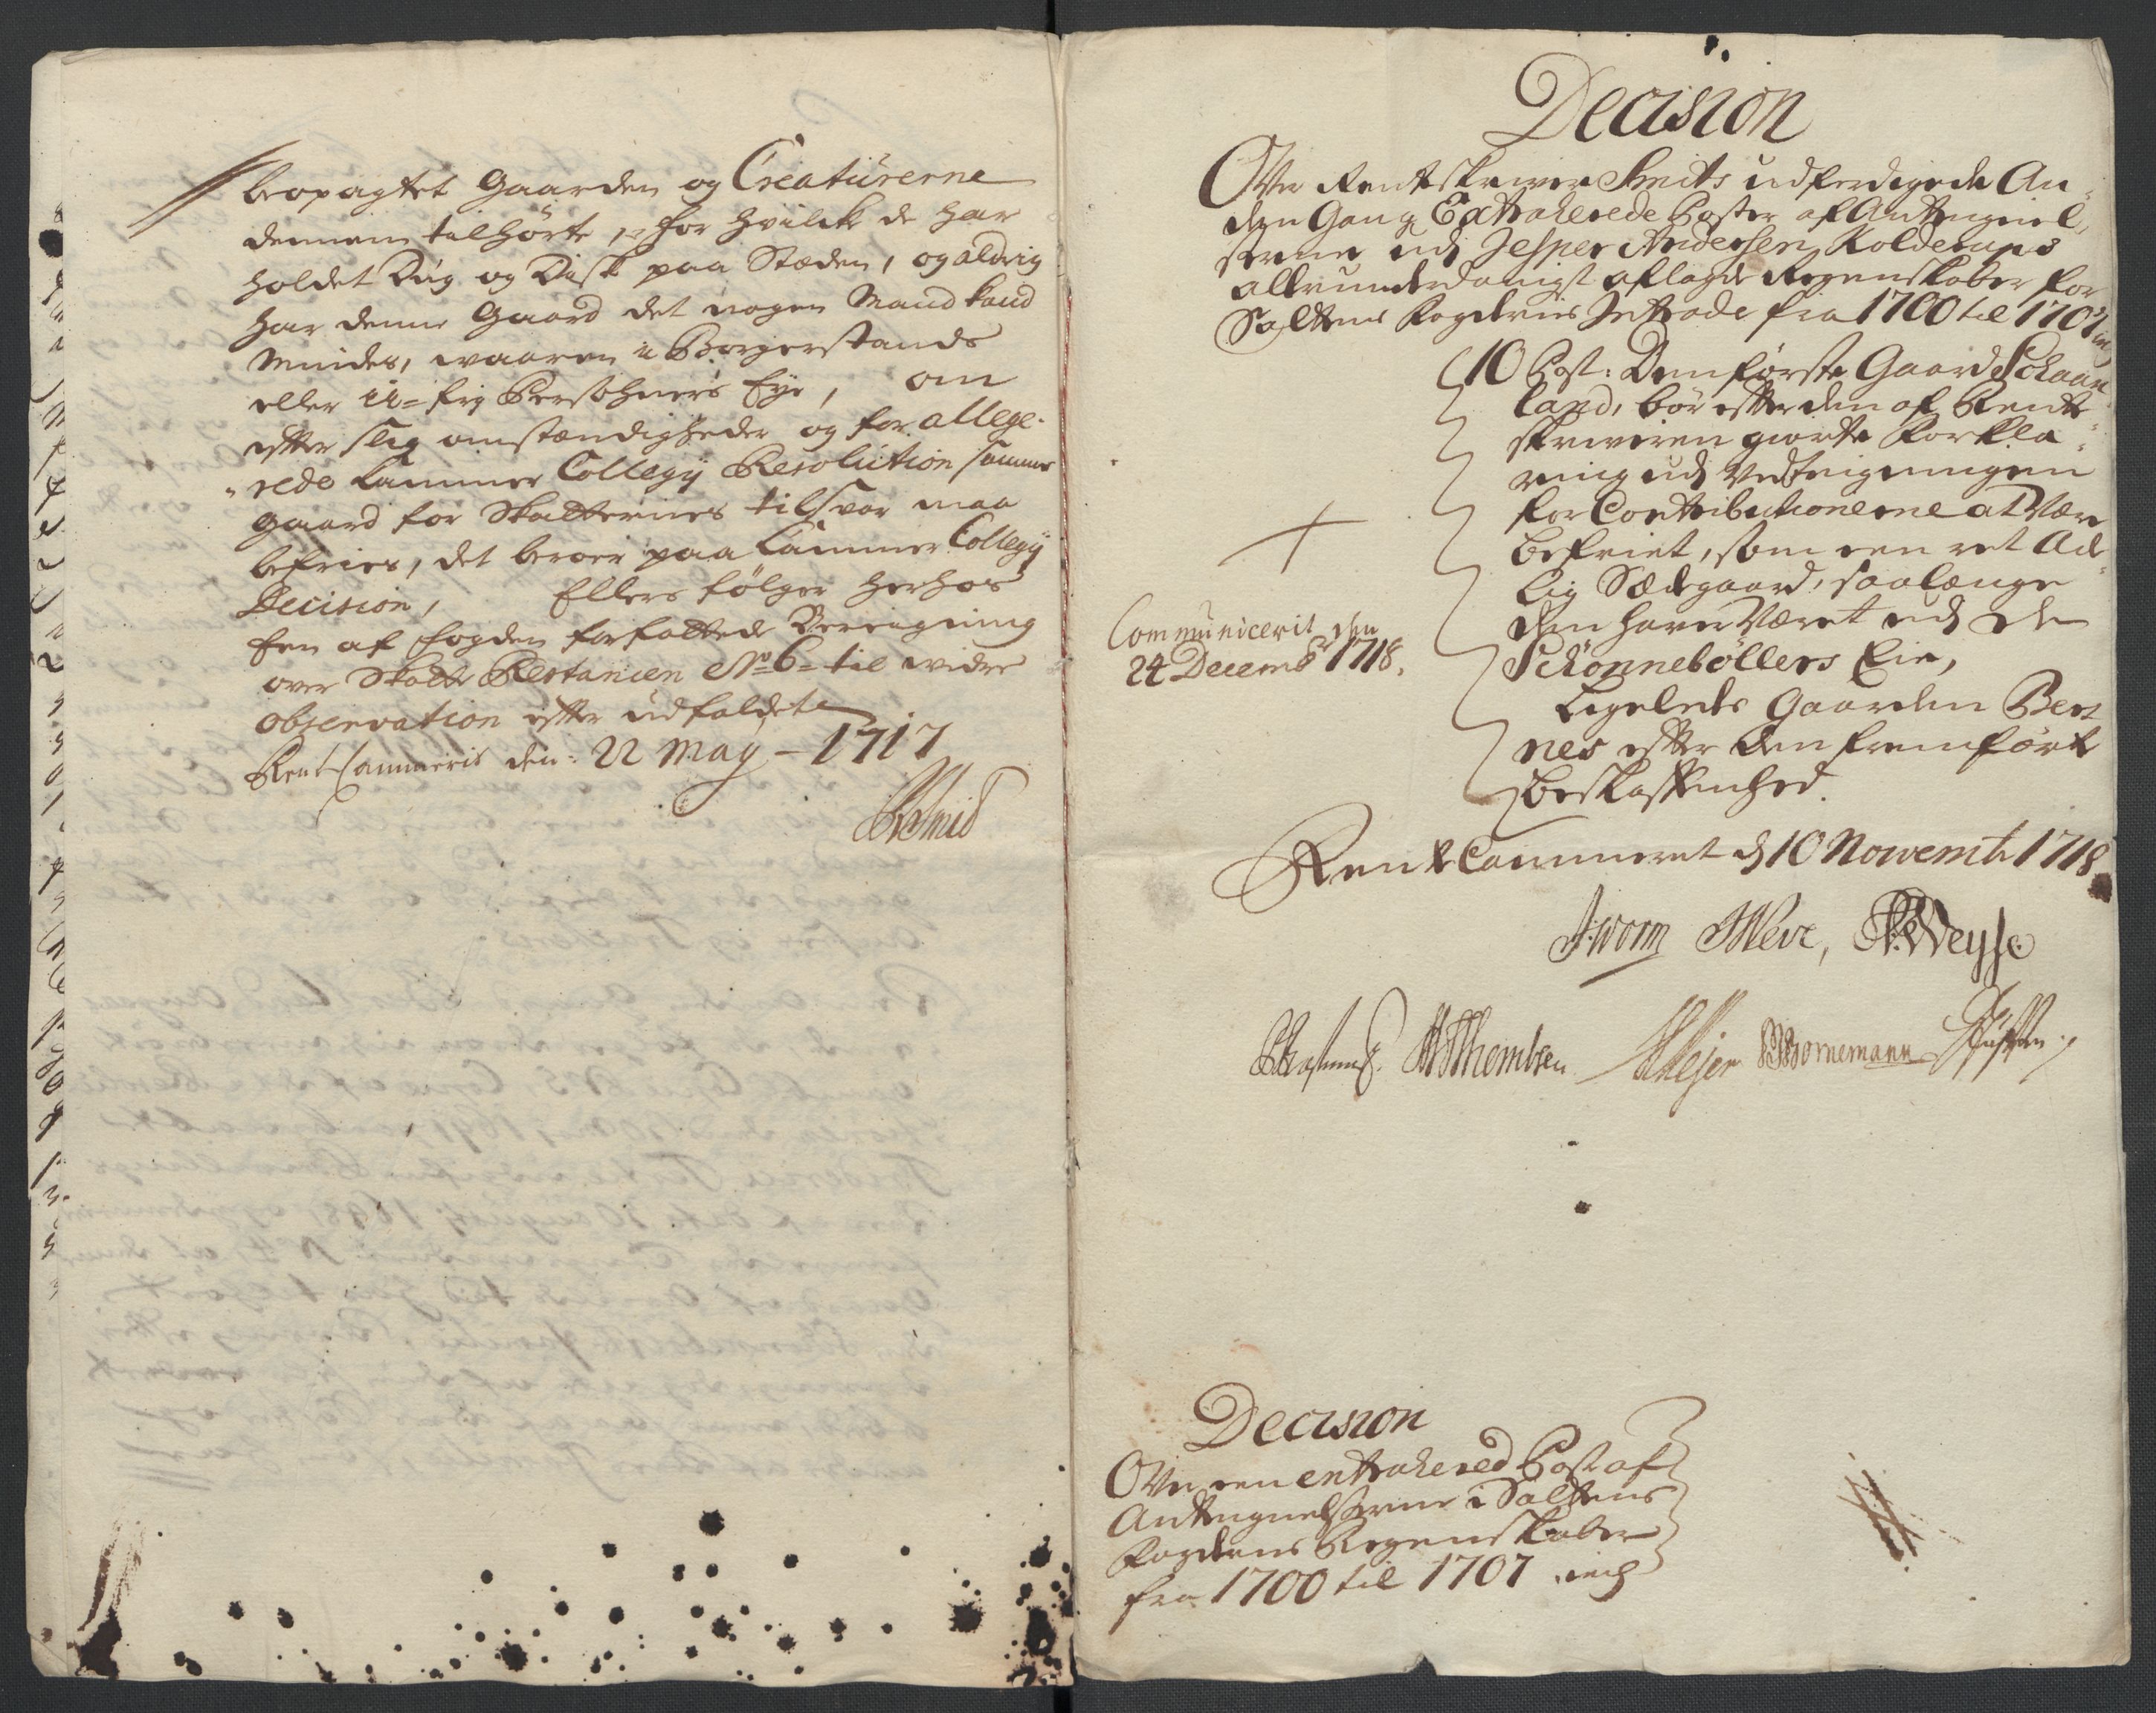 beopagtet Gaarden og Creaturerne
dennem tilhørte, for hvilck de har
holdet Dug og Disk paa Stæden, og aldrig
har denne Gaard det nogen Mand kand
mindes, waaren u Borgerstands
eller u-frj Persohners Eye, om
efter slig omstændigheder og for allege-
rede Cammer Collegij Resolution samme
gaard for Skatternes tilsvar maa
befries, det beroer paa Cammer Collegij
Decision, Ellers følger herhos
Een af fogden forfattede Beregning
over Skatte Restancen No 6 til widre
observation efter udfaldet
Rent Cammerit den: 22 May - 1717
Smid
Decision
Over Rentskriver Smits udferdigede An-
den Gang Extraherede Poster af Antegnel-
serne udj Jesper Andersen Kolderups
allerunderdanigst aflagde Regenskaber for
Saltens Fogderies Intrade fra 1700 til 1707
10 Post: Dend første Gaard Schaan-
land, bør efter den af Rent-
skriveren giorte Forkla-
ring udj Vedtegningen
for Contributionerne at Være
befriet, som een ret Ade-
lig Sædegaard, saalænge
den haver Været udj de
Schönnebøllers Eie,
Ligeledes Gaarden Bert-
nes efter den fremførte
beskaffenhed.
Communicerit den
24 Decembr 1718.
Rente Cammeret d 10 Novembr 1718
J: Worm Meve, Weyse
Rasmus Themsen Meyer Bornemann
Decision
Over een extrahered Post af
Antegnelserne i Saltens
Fogderies Regenskaber
fra 1700 til 1707 incl